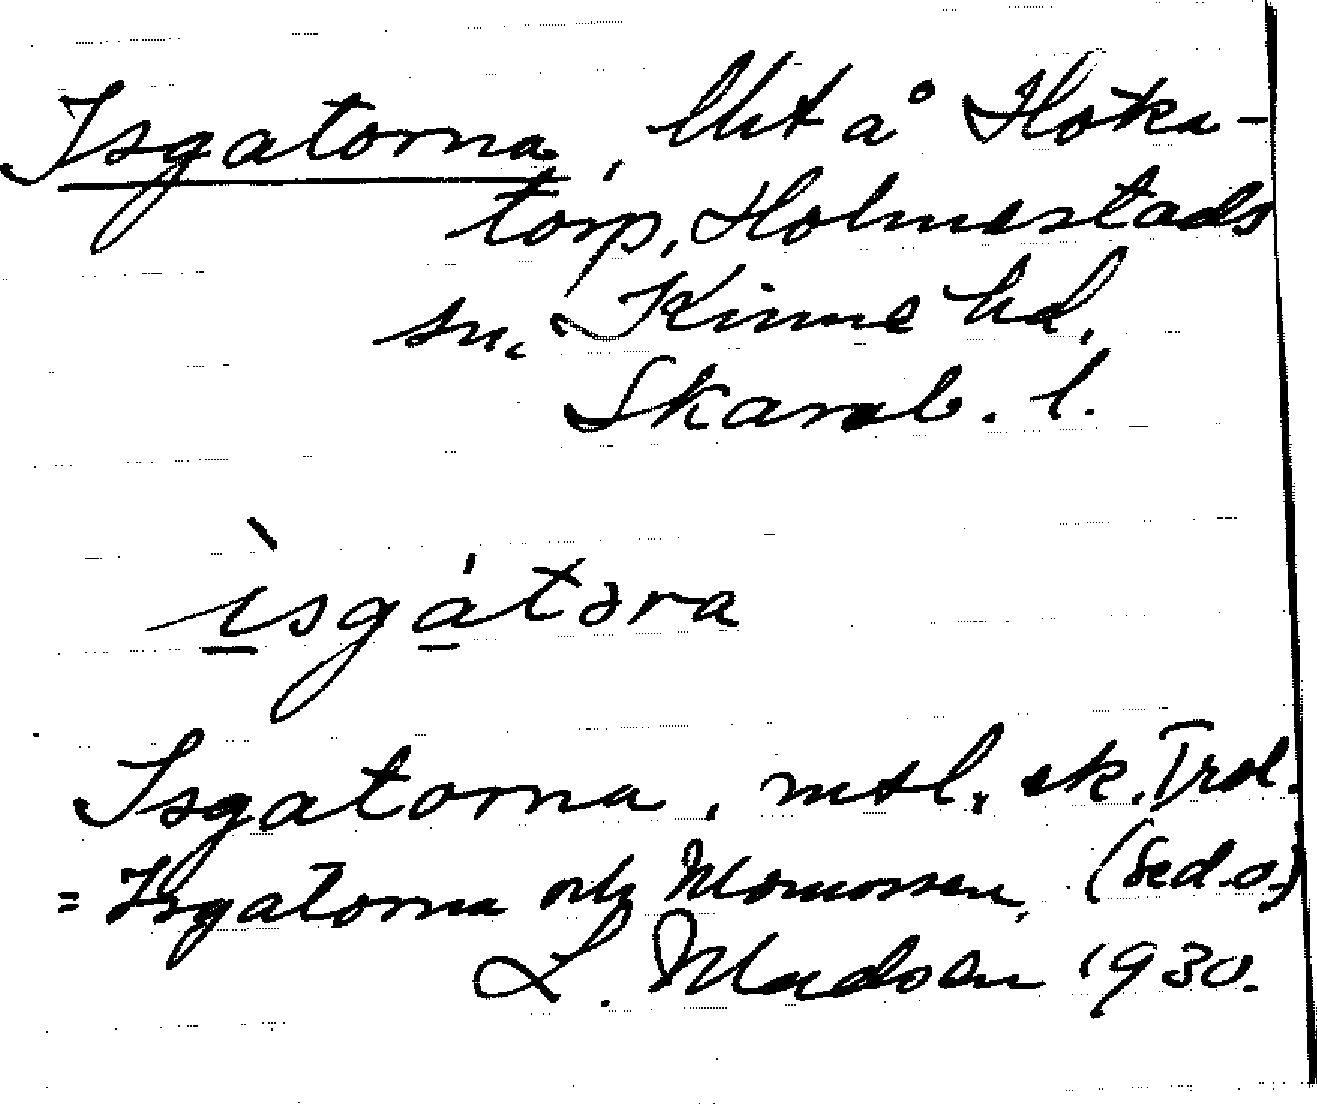 Isgatorna, Utt å Höka-
torp, Holmestads
sn. Kinne hd,
Skarab. l.
ìsgátəra
Isgatorna, mtl. ek.
= Isgatorna och Momossen, (Sed. o.)
L. 1930.